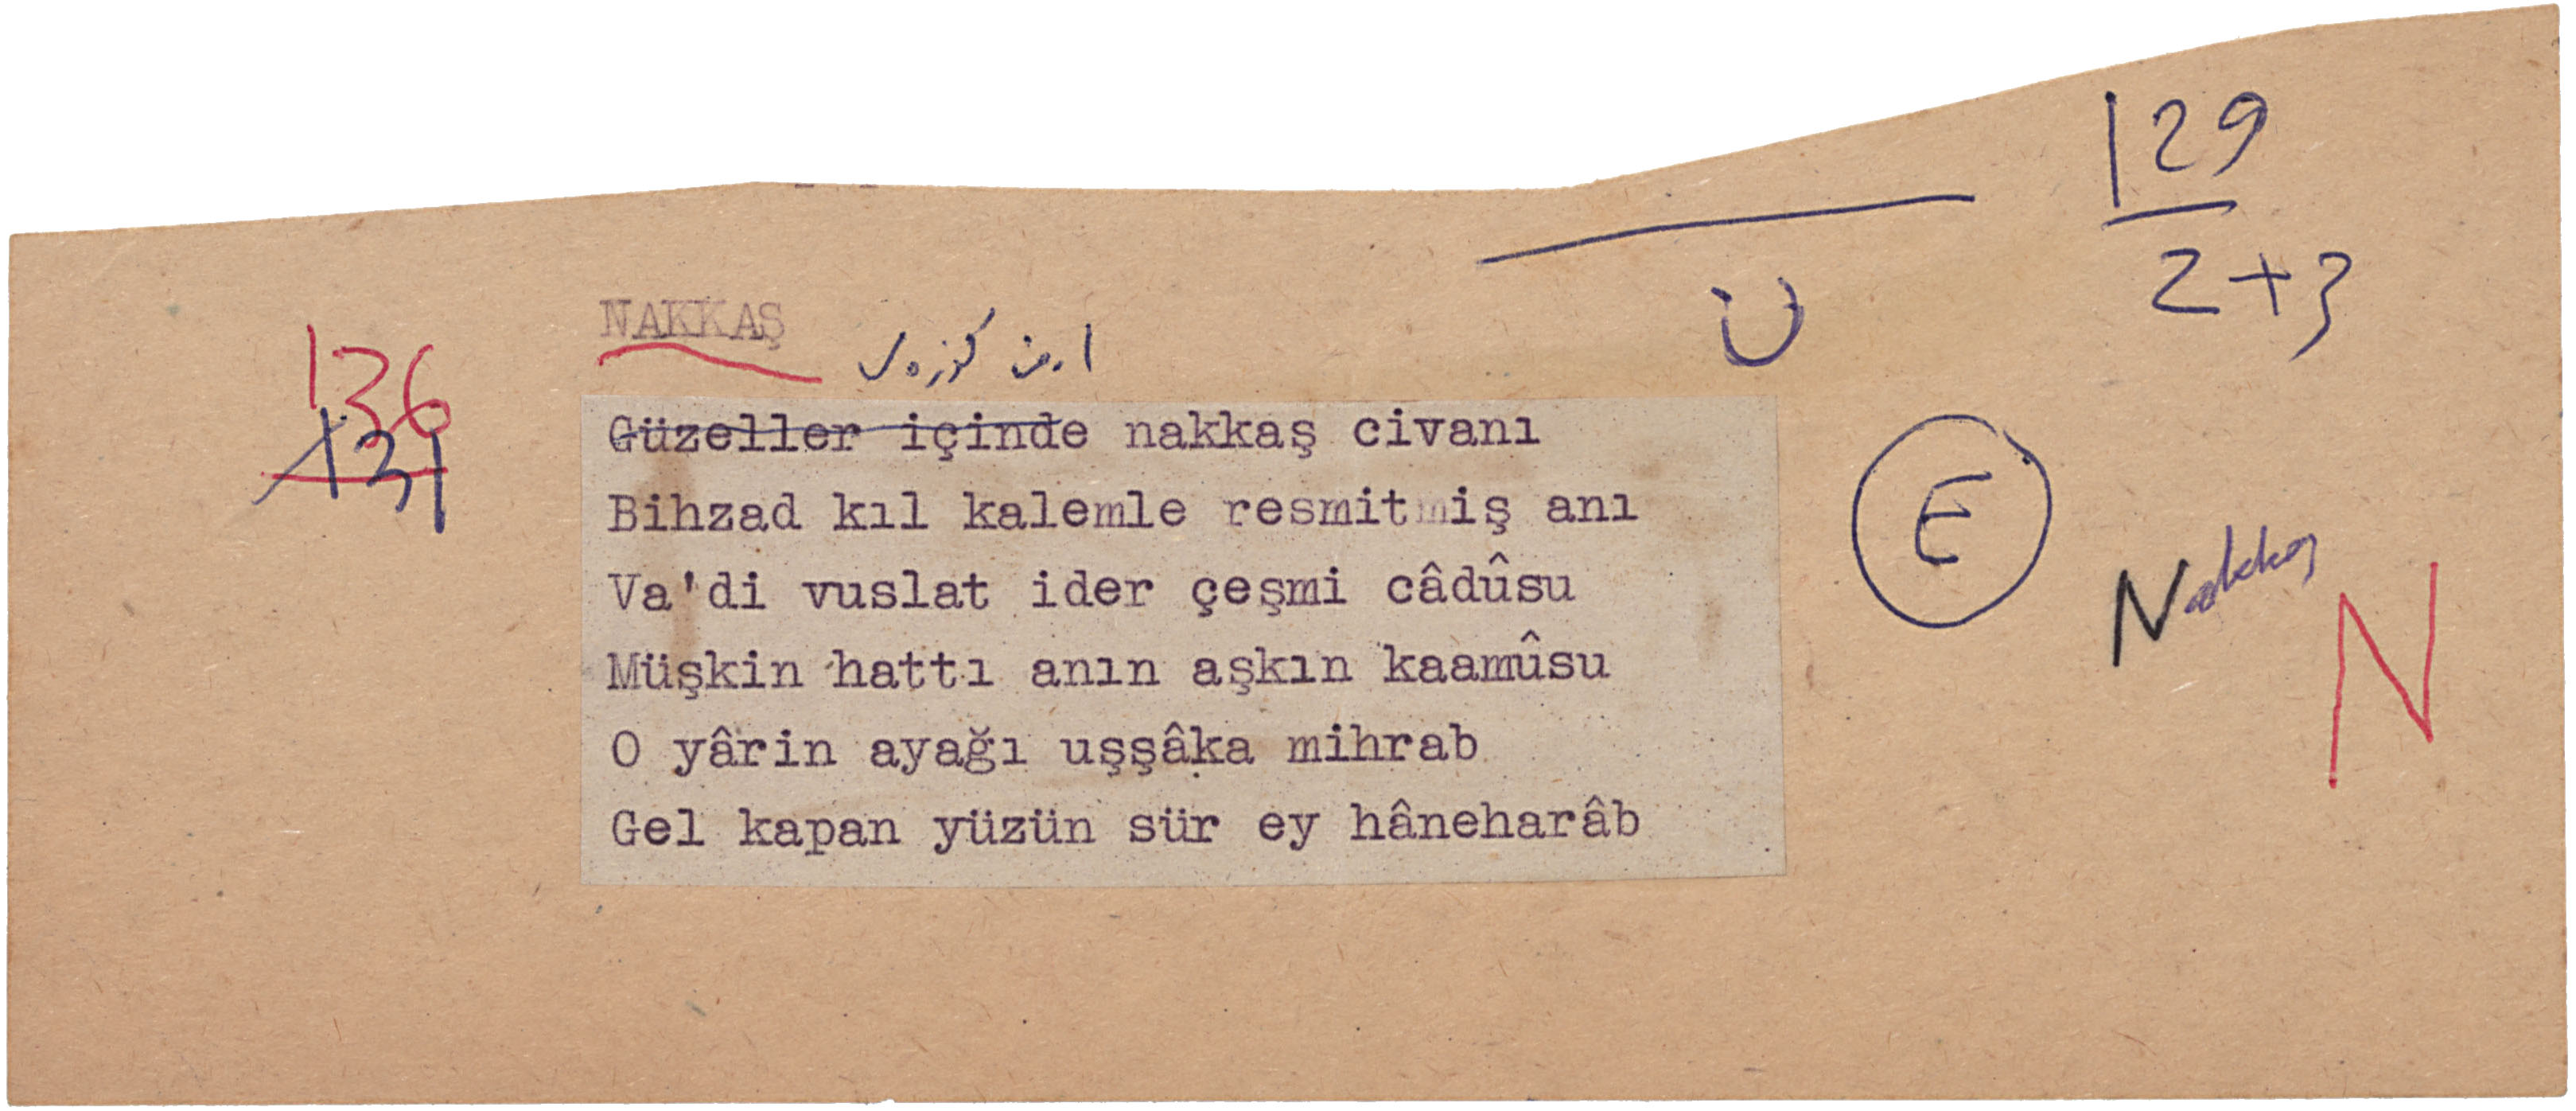 129
2+3
ن
NAKKAŞ
136
131
Güzeller içinde nakkaş civanı
Bihzad kıl kalemle resmitmiş anı
Va'di vuslat ider çeşmi câdûsu
Müşkin hattı anın aşkın kaamûsu
O yârin ayağı uşşâka mihrab
Gel kapan yüzün sür ey hâneharâb
E
Nakkaş
N